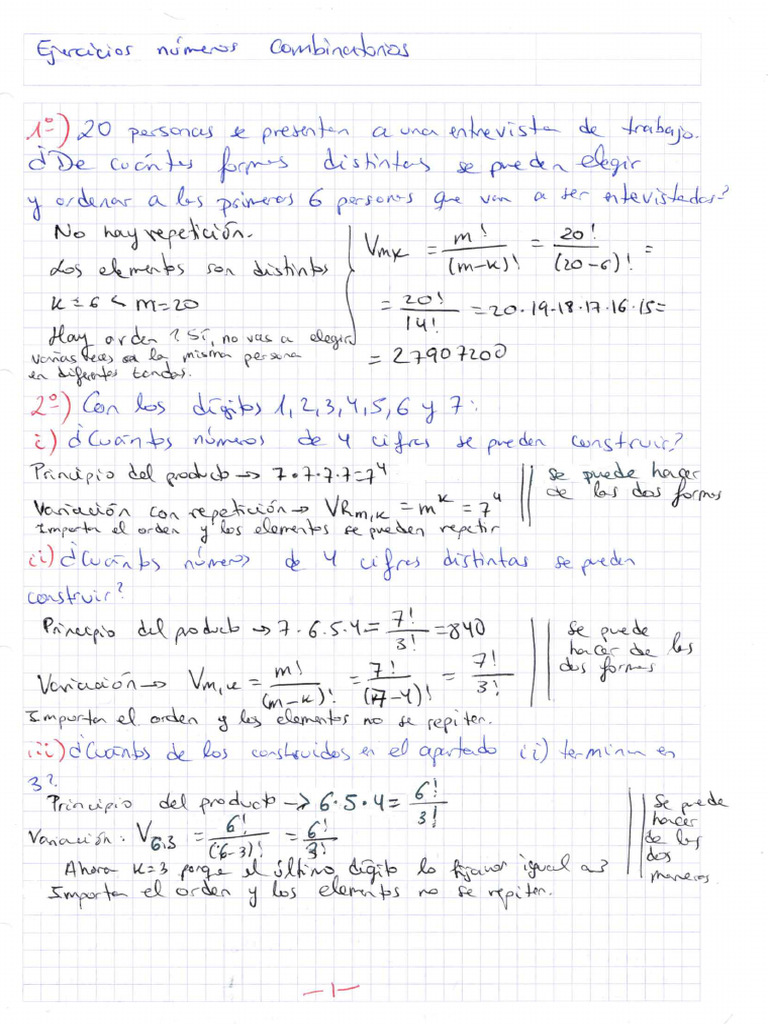 Ejercicios números combinatorios
1º) 20 personas se presentan a una entrevista de trabajo.
¿De cuántas formas distintas se pueden elegir
y ordenar a las primeras 6 personas que van a ser entevistadas?
No hay repetición.
Los elementos son distintos
K = 6 < m = 20
Hay orden? Sí, no vas a elegir
varias veces a la misma persona
en diferentes tandas.
Vm,K = m! / (m-K)! = 20! / (20-6)! =
= 20! / 14! = 20·19·18·17·16·15 =
= 27907200
2º) Con los dígitos 1, 2, 3, 4, 5, 6 y 7:
i) ¿Cuántos números de 4 cifras se pueden construir?
Principio del producto → 7·7·7·7 = 7⁴
Variación con repetición → VRm,K = m^K = 7⁴
Importa el orden y los elementos se pueden repetir
se puede hacer
de las dos formas
ii) ¿Cuántos números de 4 cifras distintas se pueden
construir?
Principio del producto → 7·6·5·4 = 7! / 3! = 840
Variación → Vm,K = m! / (m-K)! = 7! / (7-4)! = 7! / 3!
Importa el orden y los elementos no se repiten.
Se puede
hacer de las
dos formas
iii) ¿Cuántos de los construidos en el apartado ii) terminan en
3?
Principio del producto → 6·5·4 = 6! / 3!
Variación: V6,3 = 6! / (6-3)! = 6! / 3!
Ahora K=3 porque el último dígito lo fijamos igual a 3
Importa el orden y los elementos no se repiten.
Se puede
hacer
de las
dos
maneras
-1-